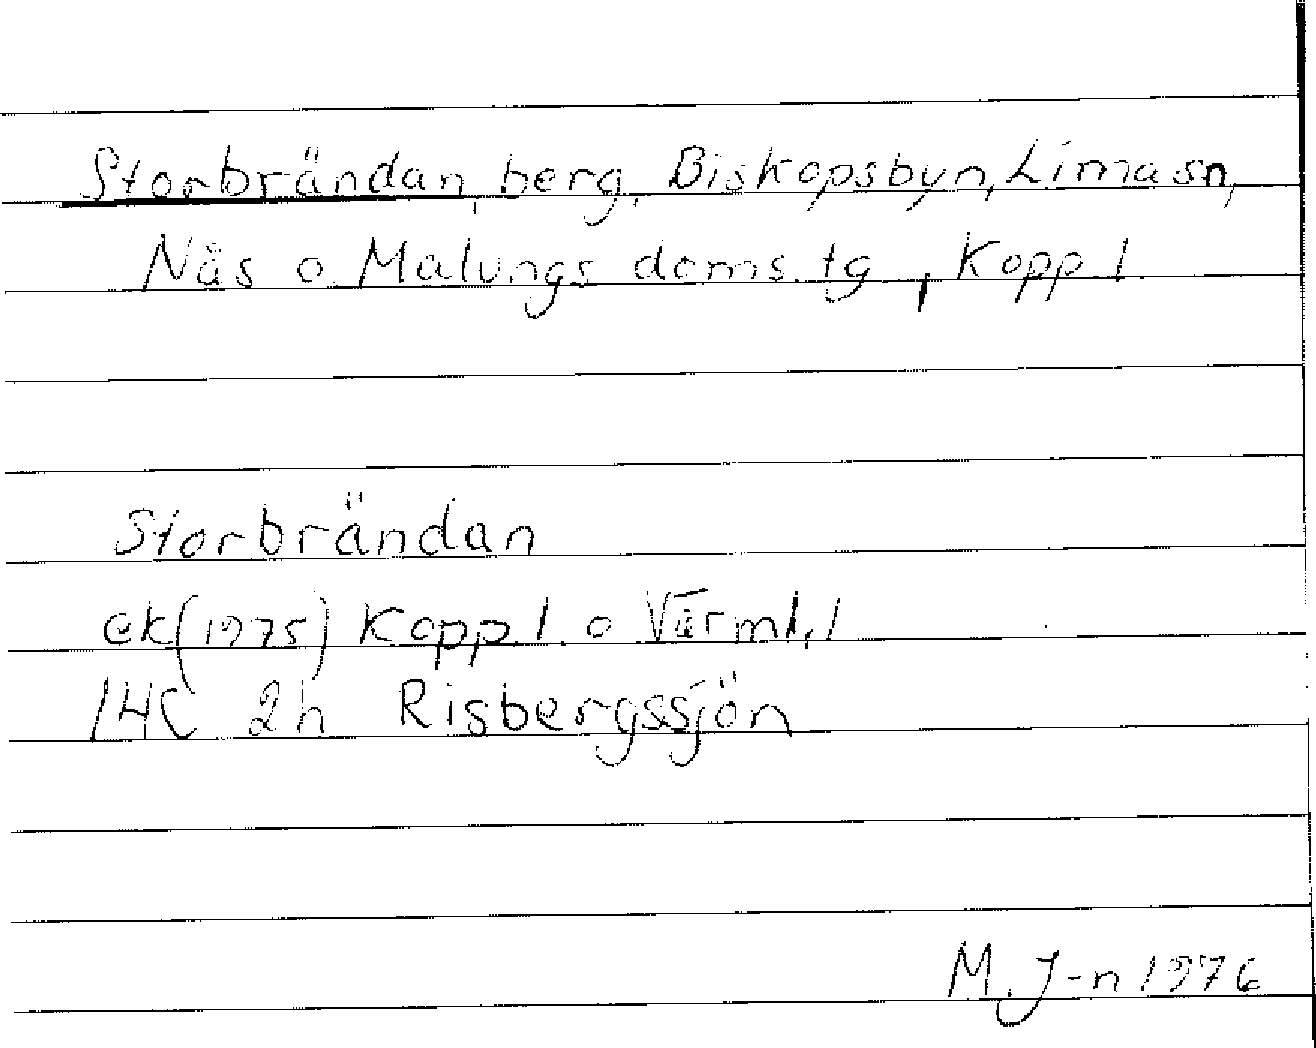 Storbrändan, berg, Biskopsbyn, Lima sn,
Näs o Malungs doms. tg, Kopp l
Storbrändan
ek (1975) Kopp l. o Värml, l
14C 2h Risbergssjön
M. J-n 1976